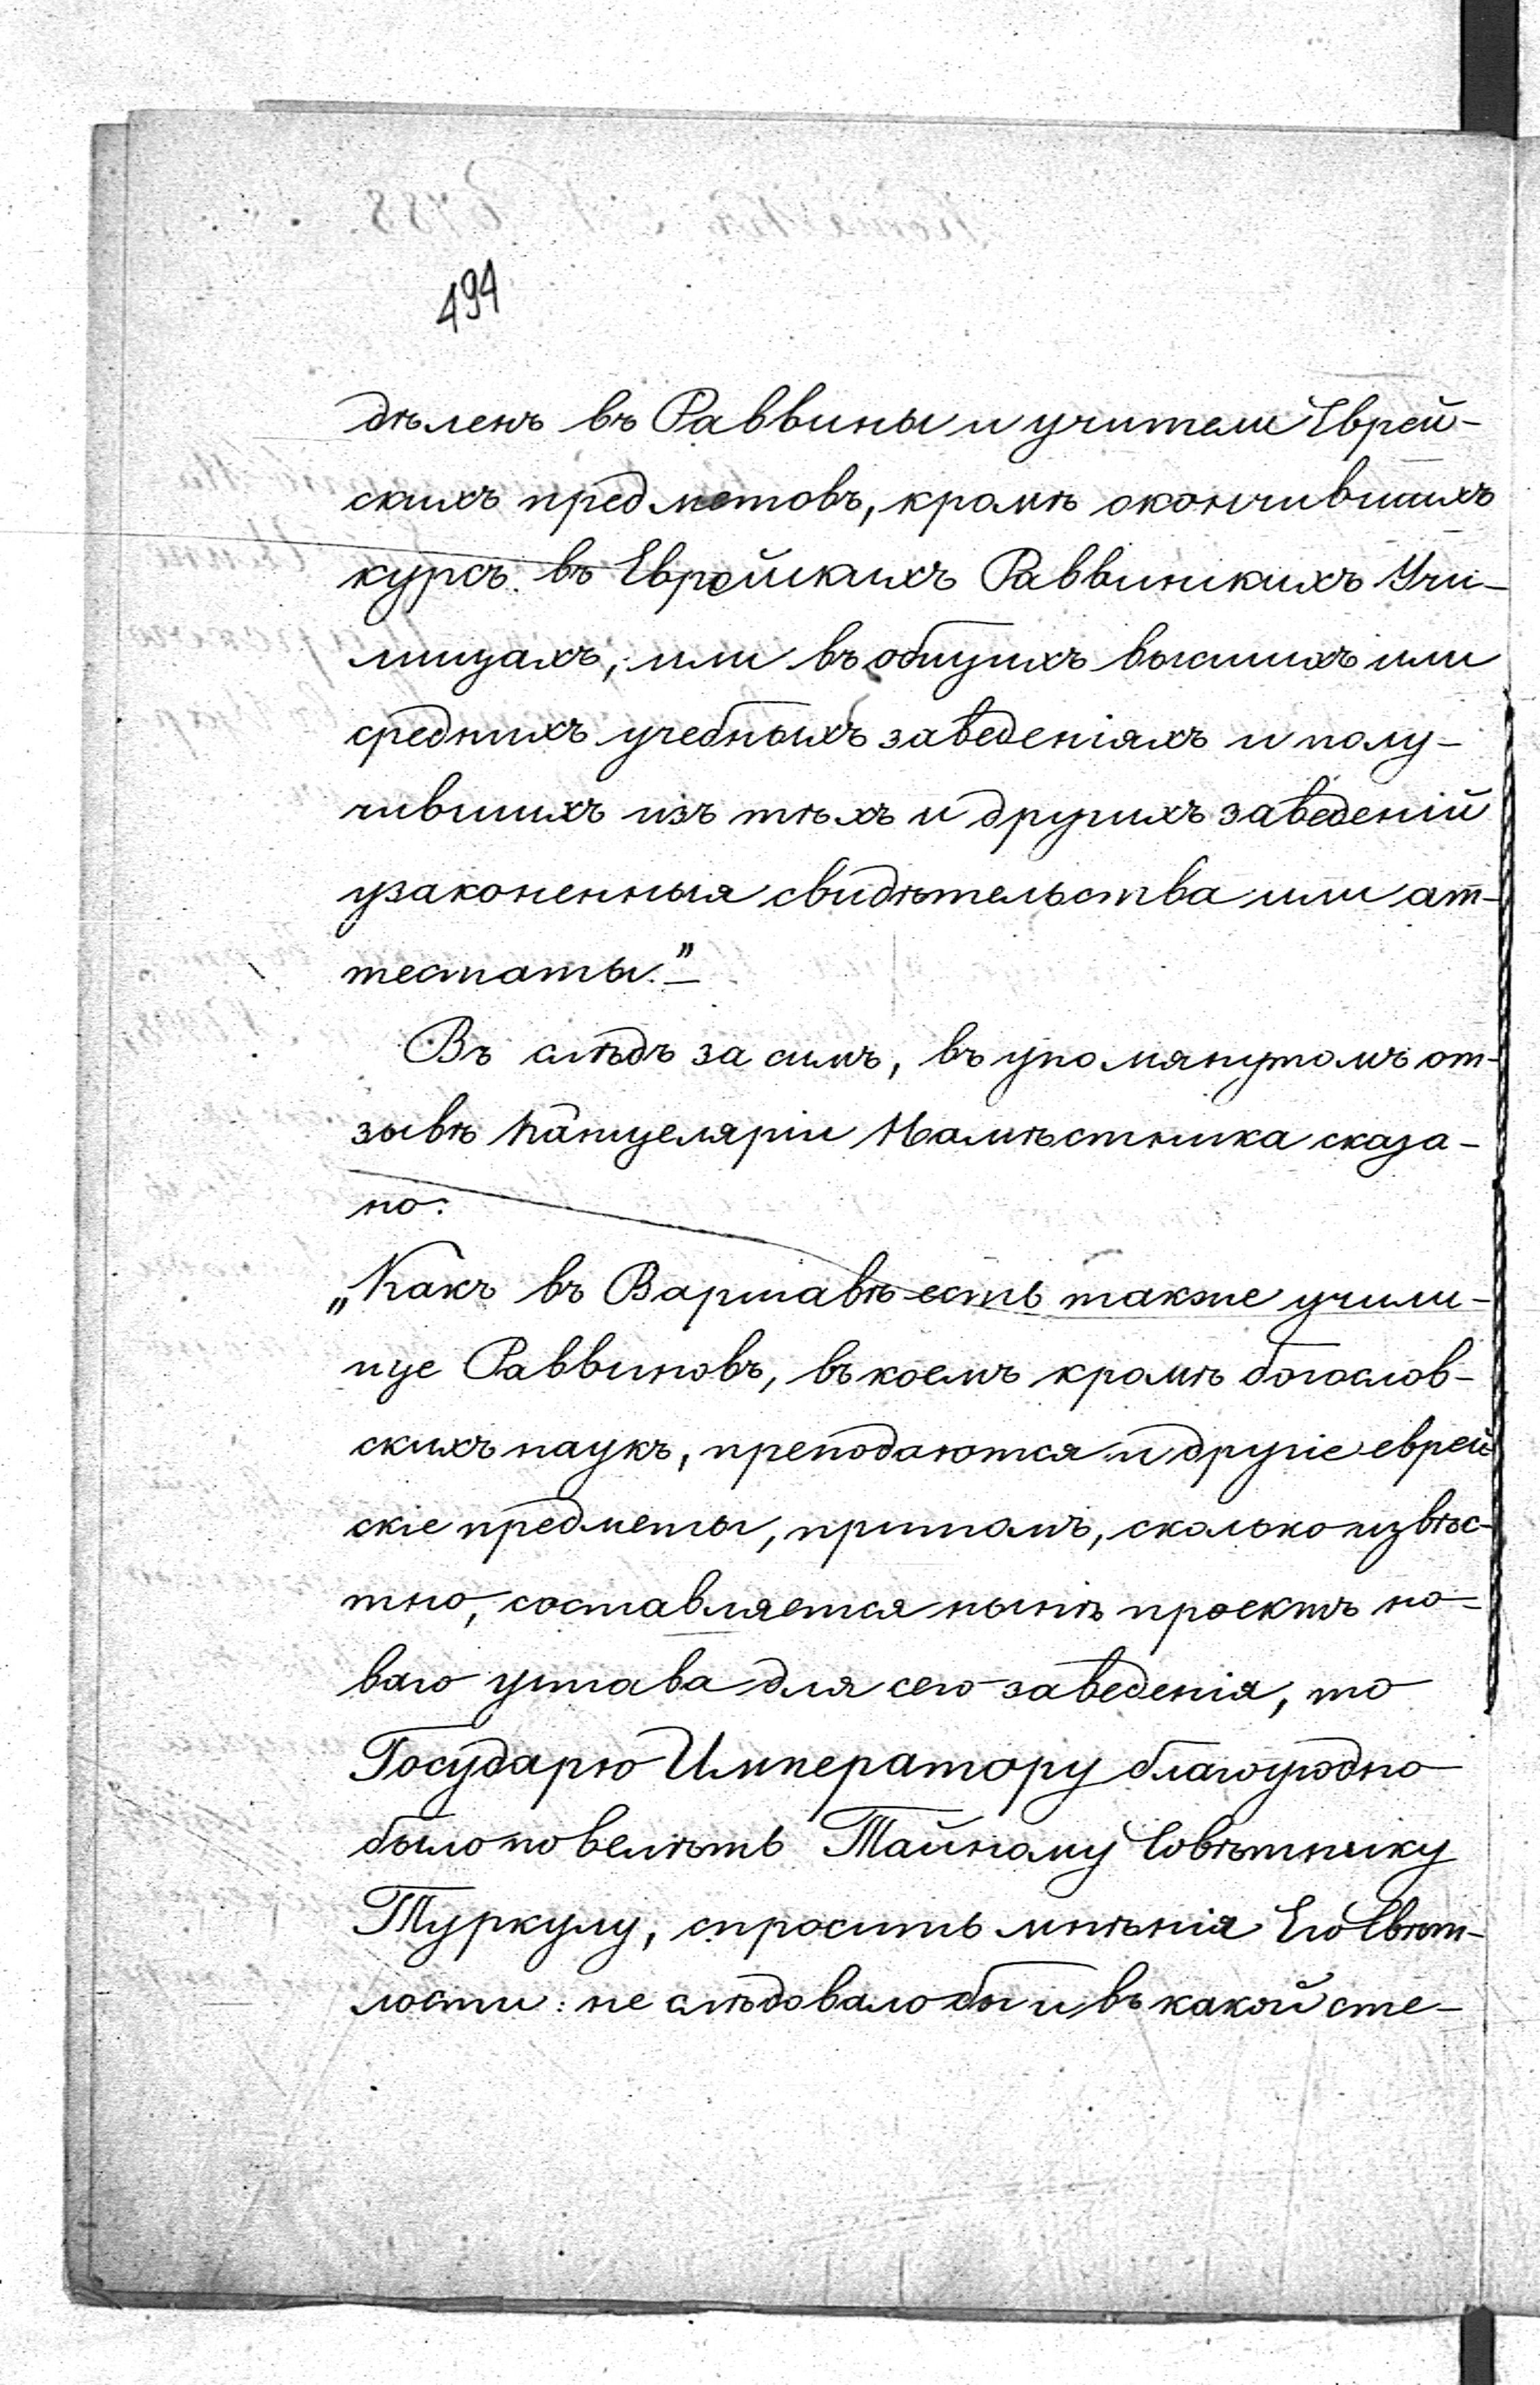 494
дѣленъ въ Раввины и учители Еврей-
скихъ предметовъ, кромѣ окончившихъ
курсъ въ Еврейскихъ Раввинскихъ Учи-
лищахъ, или въ общихъ высшихъ или
среднихъ учебныхъ заведеніяхъ и полу-
чившихъ изъ тѣхъ и другихъ заведеній
узаконенныя свидѣтельства или ат-
тестаты."—
Въ слѣдъ за симъ, въ упомянутомъ от-
зывѣ Канцеляріи Намѣстника сказа-
но:
„Какъ въ Варшавѣ есть также учили-
ще Раввиновъ, въ коемъ кромѣ богослов-
скихъ наукъ, преподаются и другіе еврей
скіе предметы, притомъ, сколько извѣс-
тно, составляется нынѣ проектъ но-
ваго устава для сего заведенія, то
Государю Императору благоугодно
было повелѣть Тайному Совѣтнику
Туркулу, спросить мнѣнія Его Свѣт-
лости: не слѣдовало бы и въ какой сте-